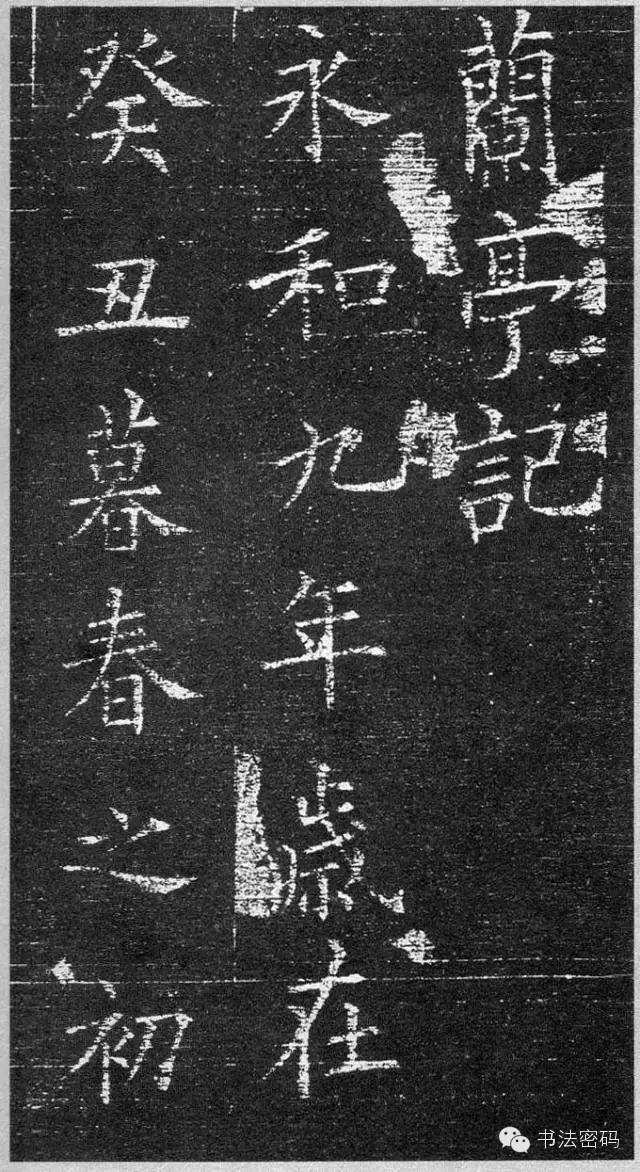 蘭亭記
永和九年歲在
癸丑暮春之初
书法密码